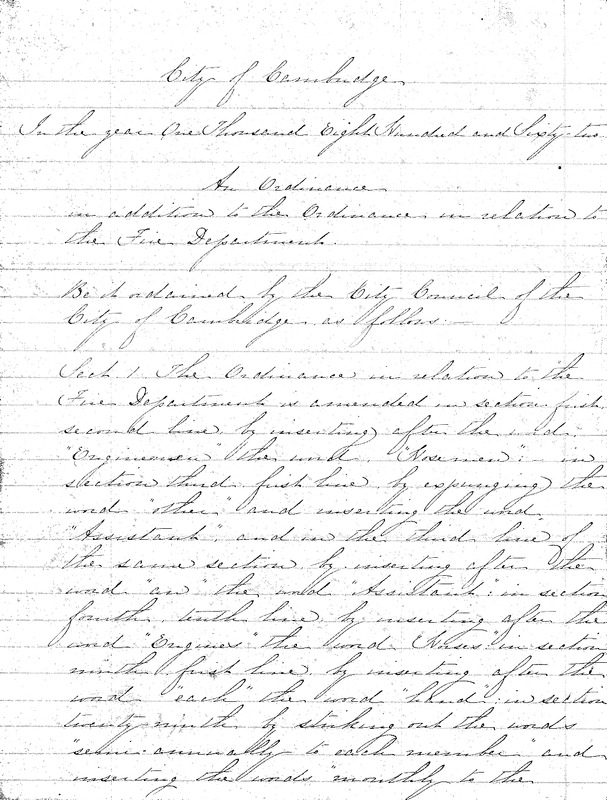 City of Cambridge
In the year One Thousand Eight Hundred and Sixty-two
An Ordinance
in addition to the Ordinance in relation to
the Fire Department.
Be it ordained by the City Council of the
City of Cambridge as follows:—
Sect 1. The Ordinance in relation to the
Fire Department is amended in section first,
second line by inserting after the word
"Enginemen" the word "Hosemen": in
section third first line by expunging the
word "other" and inserting the word
"Assistant", and in the third line of
the same section by inserting after the
word "an" the word "Assistant": in section
fourth, tenth line by inserting after the
word "Engines" the word "Hoses": in section
ninth first line by inserting after the
word "each" the word "hand": in section
twenty ninth by striking out the words
"semi-annually to each member" and
inserting the words "monthly to the